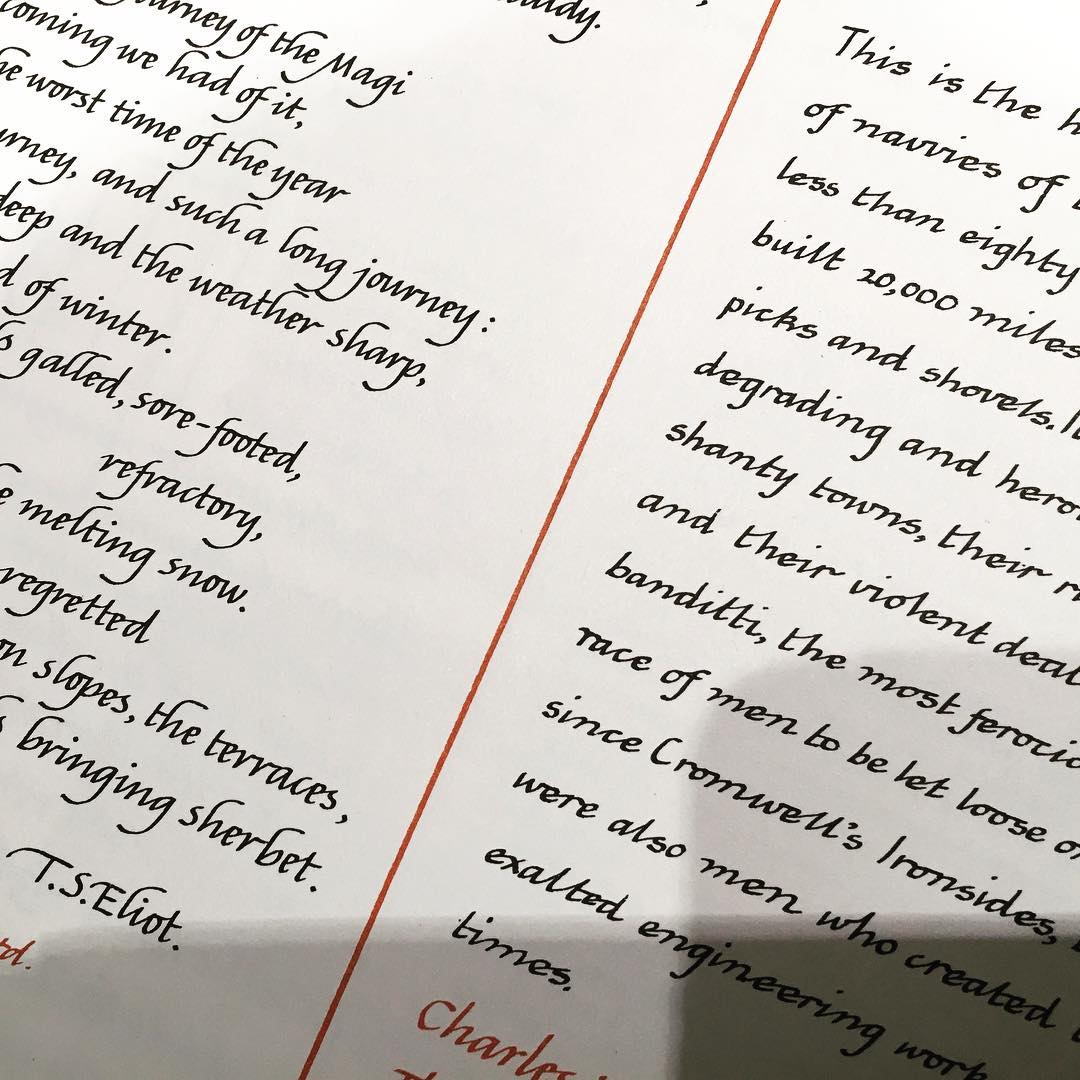 Journey of the Magi
coming we had of it,
worst time of the year
and such a long journey:
deep and the weather sharp,
of winter.
galled, sore-footed,
refractory,
melting snow.
regretted
slopes, the terraces,
bringing sherbet.
T.S.Eliot.
This is the
of navvies of
less than eighty
built 20,000 miles
picks and shovels.
degrading and
shanty towns, their
and their violent
banditti, the most
race of men to be let loose
since Cromwell's Ironsides,
were also men who created
exalted engineering
times.
Charles